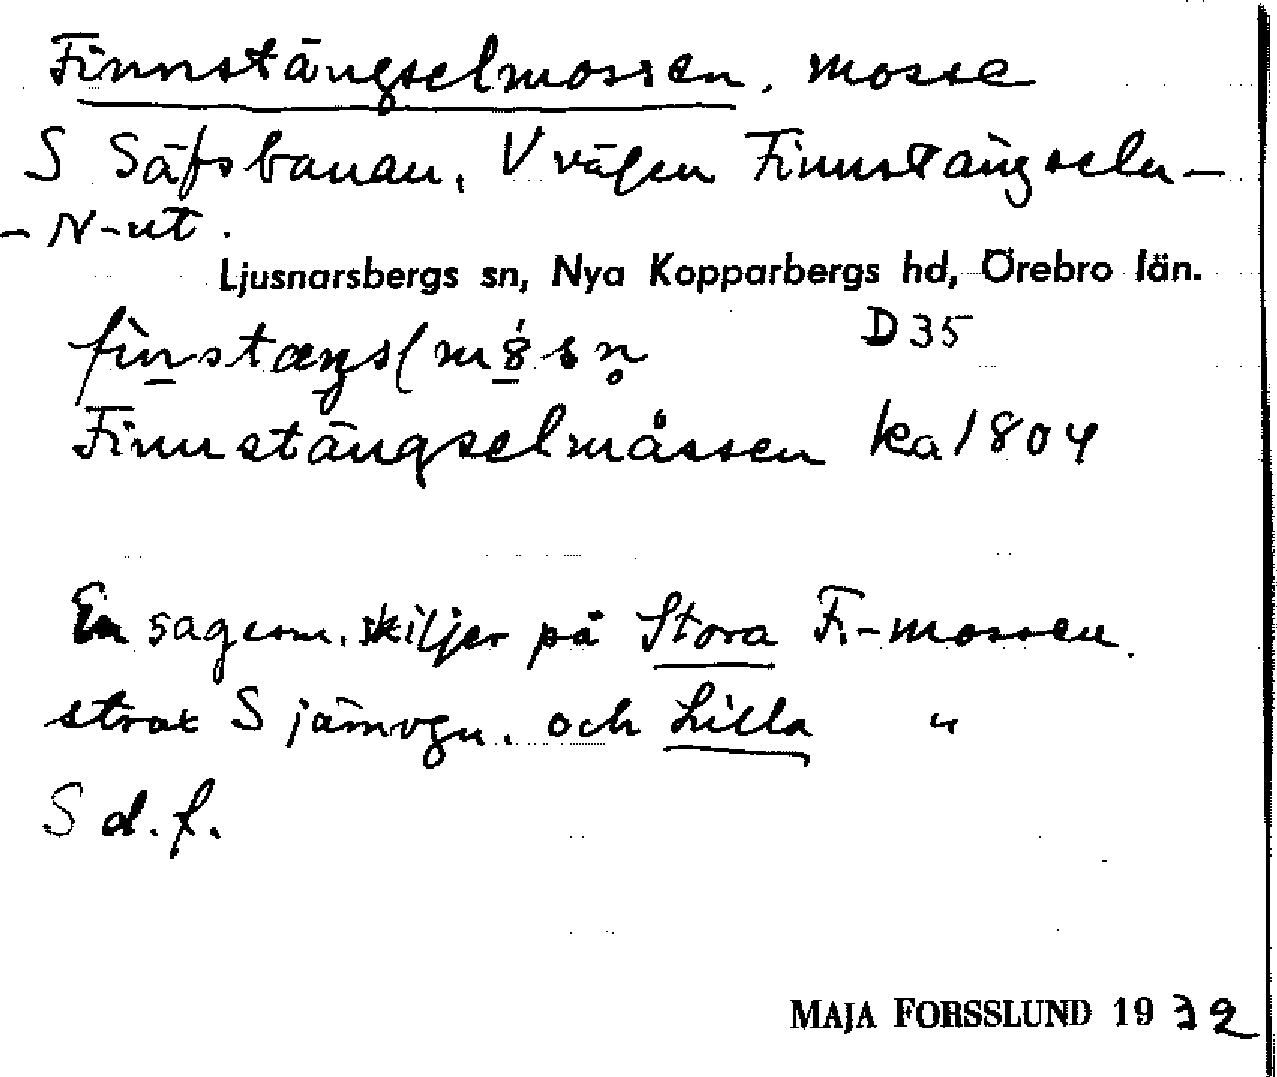 Finnstängselmossen, mosse
S Säfsbanan, V vägen Finnstängseln-
-N-ut.
Ljusnarsbergs sn, Nya Kopparbergs hd, Örebro län.
D 35
Finnstängselmåssen ka 1804
En sagesm. skiljer på Stora F.-mossen
strax S järnvgn. och Lilla "
S d.f.
MAJA FORSSLUND 1932